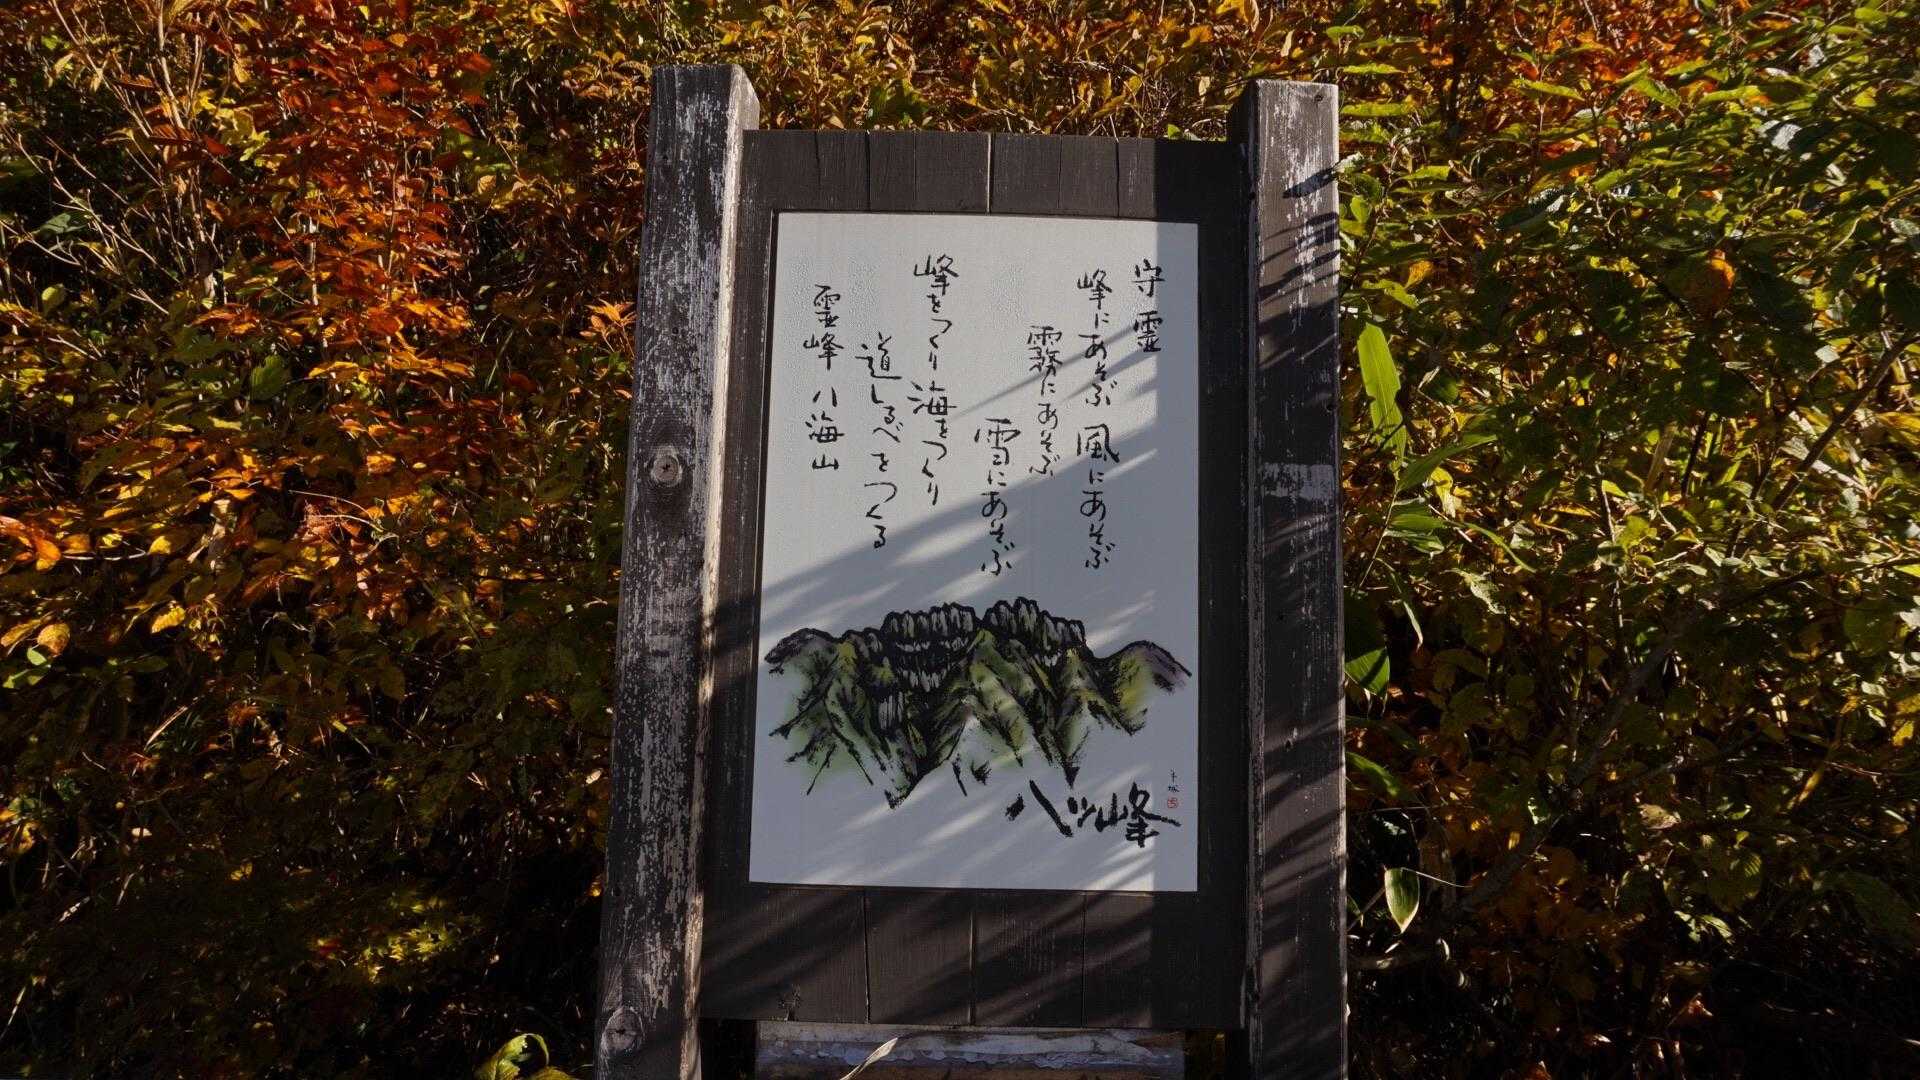 守霊
峰にあそぶ 風にあそぶ
霧にあそぶ
雪にあそぶ
峰をつくり海をつくり
道しるべをつくる
霊峰八海山
八ツ峰